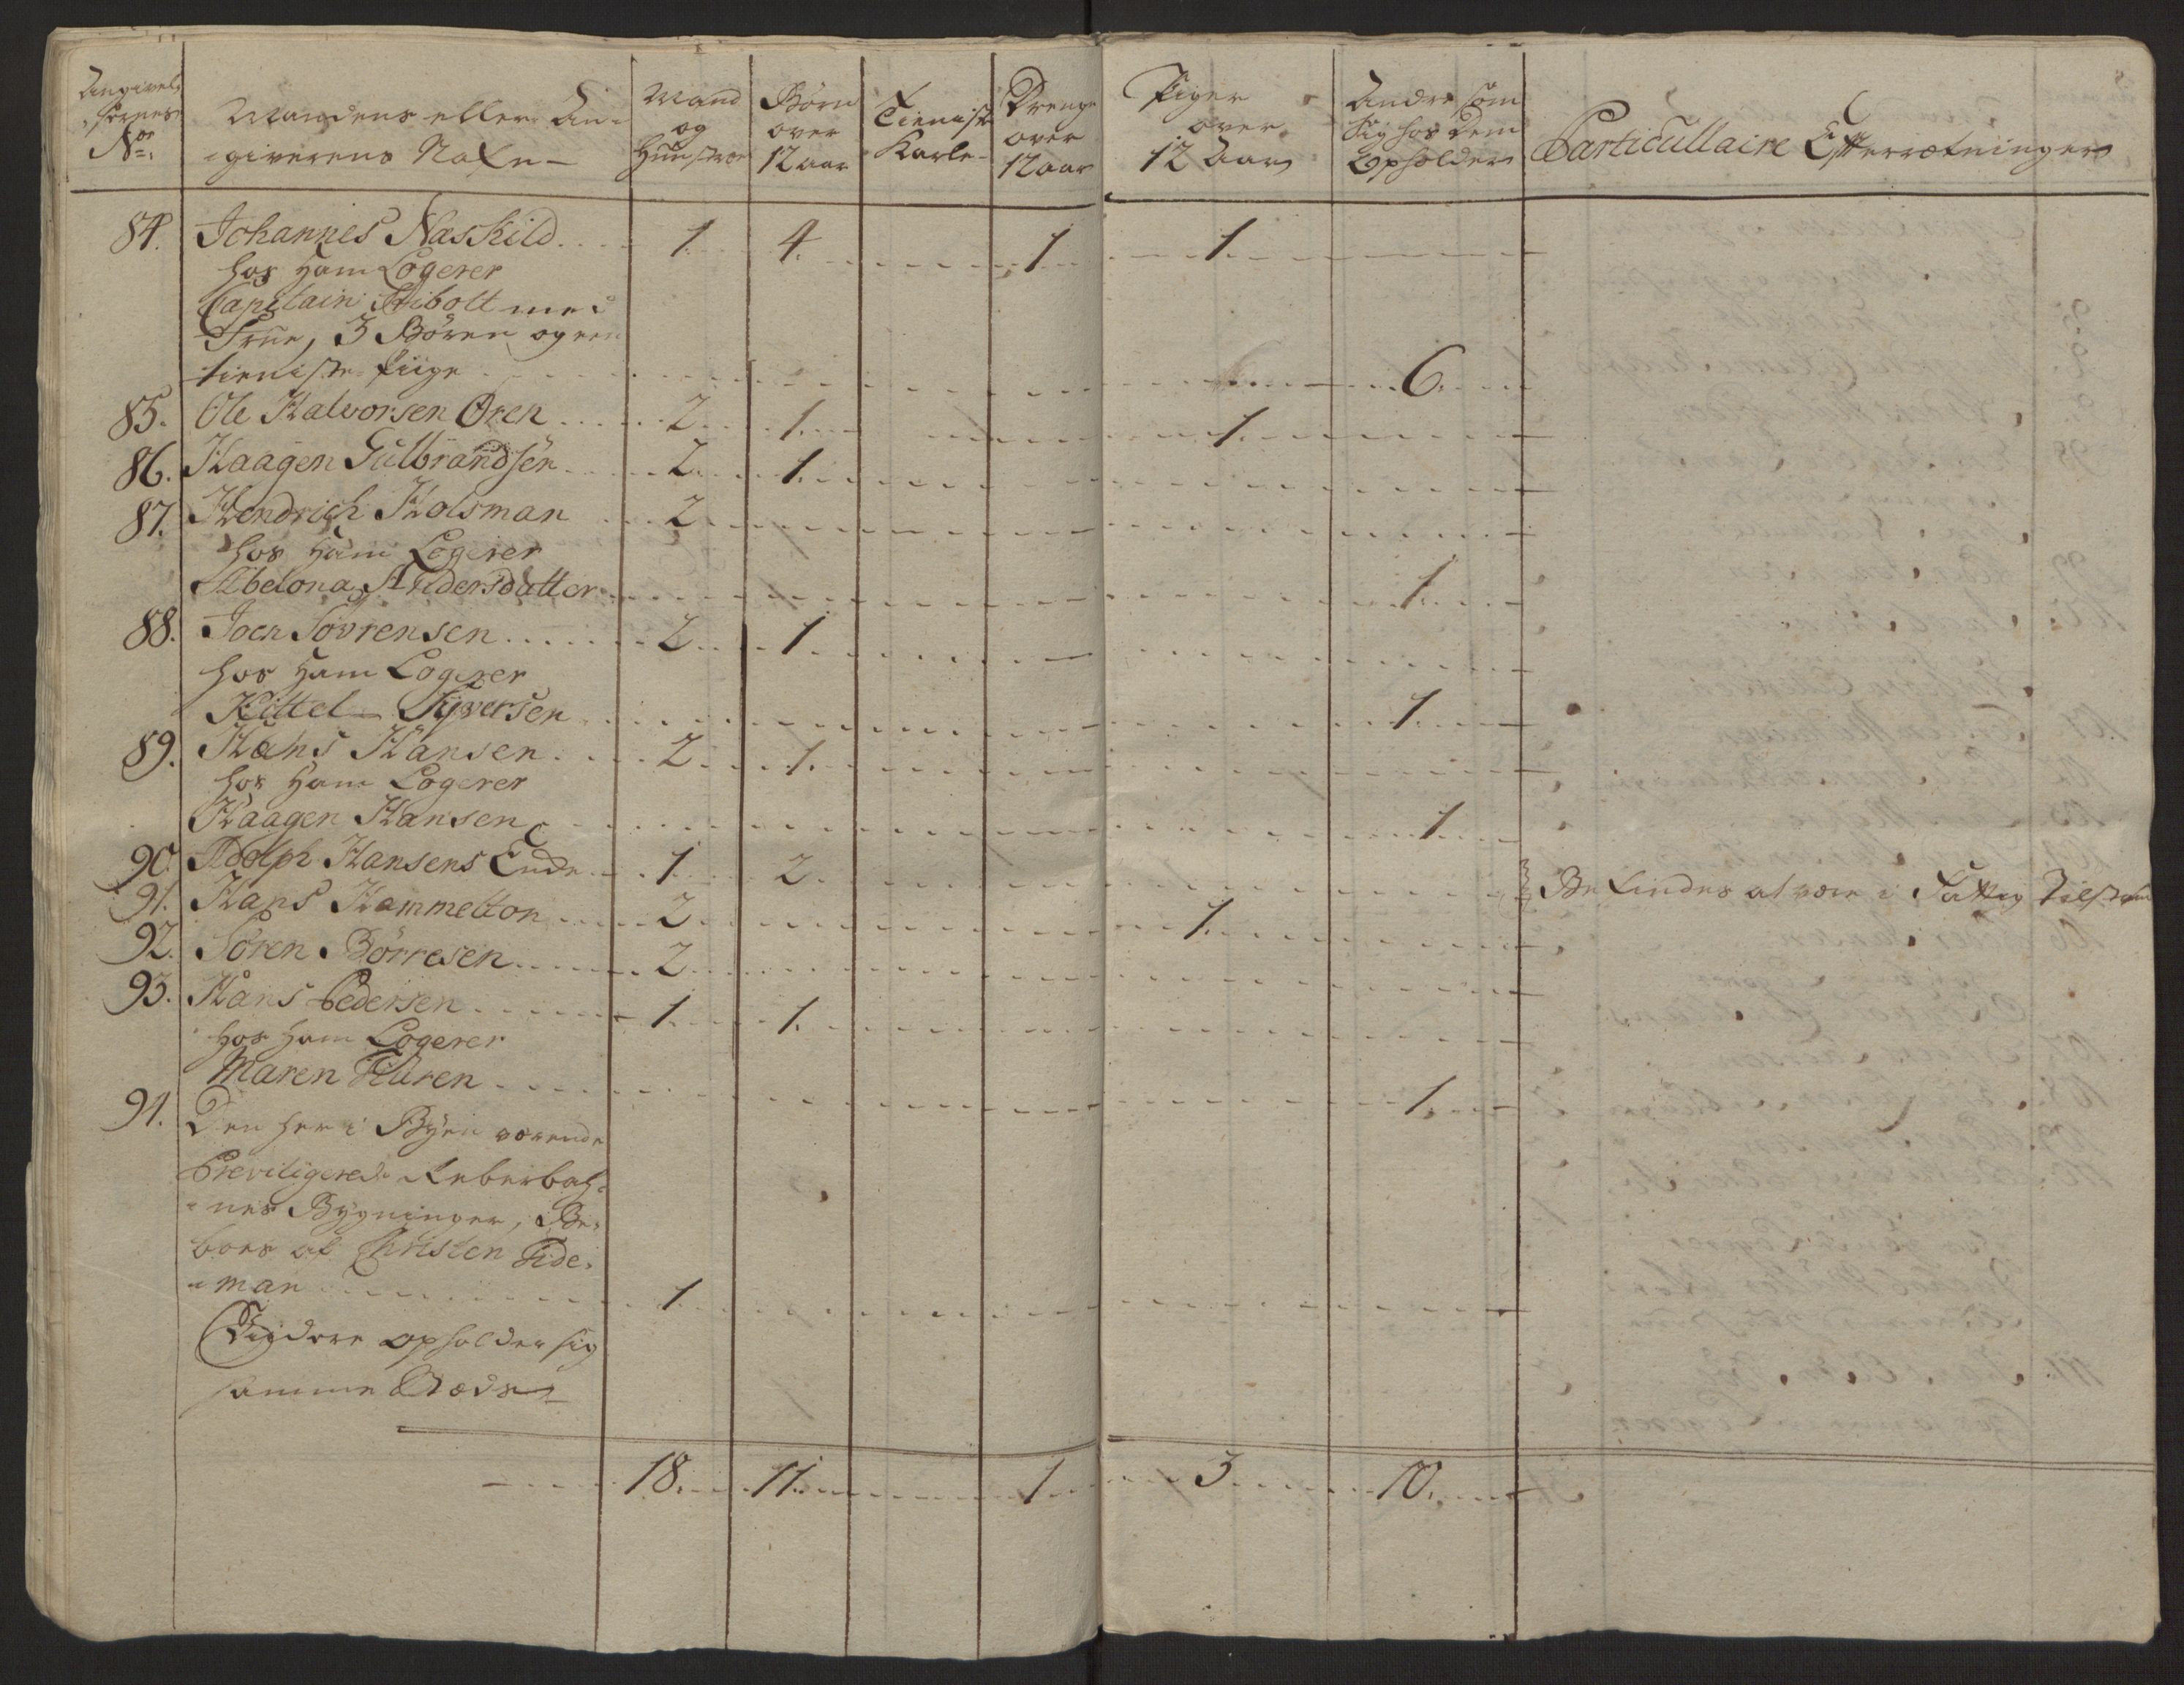 Angivel-
sernes
No.
Mandens eller An-
giverens Nafn
Mand
og
Hunstroe
Børn
over
12 aar
Tieniste
Karle
Drenge
over
12 aar
Piger
over
12 Aar
Andre som
sig hos dem
Opholder
Particullaire Efterrætninger
84. Johannes Næskild 1. 4. 1. 1.
hos ham Logerer
Capitain Stibolt med
Frue, 3 Børen og een
tieniste Piige 6.
85. Ole Halvorsen Øren 2. 1. 1.
86. Haagen Gulbrandsen 2. 1.
87. Hendrich Holsman 2.
hos ham Logerer
Abelona Andersdatter 1.
88. Joen Søvrensen 2. 1.
hos ham Logerer
Kittel Syversen 1.
89. Hans Hansen 2. 1.
hos ham Logerer
Haagen Hansen 1.
90. Adolph Hansens Enke 1. 2. Befindes at være i Fattig Tilstand
91. Hans Hammelton 2. 1.
92. Søren Børresen 2.
93. Hans Pedersen 1. 1.
hos ham Logerer
Maren Fiuren 1.
94. Den her i Byen værende
Previligerede Reberbah-
nes Bygninger, Be-
boes af Christen Tide-
man 1.
Vigdere opholder sig
samme Stæds
18. 11. 1. 3. 10.